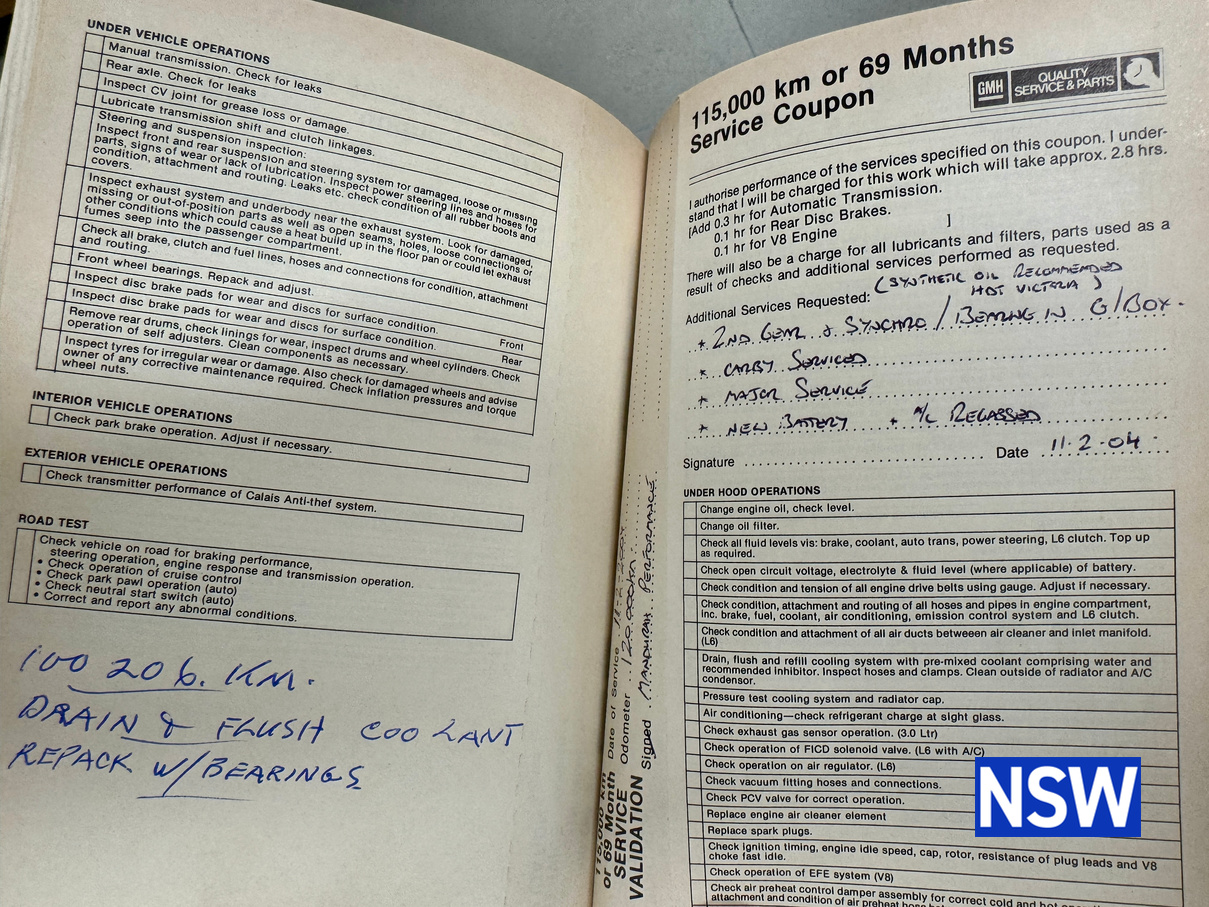 UNDER VEHICLE OPERATIONS
Manual transmission. Check for leaks
Rear axle. Check for leaks
Inspect CV joint for grease loss or damage.
Lubricate transmission shift and clutch linkages.
Steering and suspension inspection:
Inspect front and rear suspension and steering system for damaged, loose or missing
parts, signs of wear or lack of lubrication. Inspect power steering lines and hoses for
condition, attachment and routing. Leaks etc. check condition of all rubber boots and
covers.
Inspect exhaust system and underbody near the exhaust system. Look for damaged,
missing or out-of-position parts as well as open seams, holes, loose connections or
other conditions which could cause a heat build up in the floor pan or could let exhaust
fumes seep into the passenger compartment.
Check all brake, clutch and fuel lines, hoses and connections for condition, attachment
and routing.
Front wheel bearings. Repack and adjust.
Inspect disc brake pads for wear and discs for surface condition. Front
Inspect disc brake pads for wear and discs for surface condition. Rear
Remove rear drums, check linings for wear, inspect drums and wheel cylinders. Check
operation of self adjusters. Clean components as necessary.
Inspect tyres for irregular wear or damage. Also check for damaged wheels and advise
owner of any corrective maintenance required. Check inflation pressures and torque
wheel nuts.
INTERIOR VEHICLE OPERATIONS
Check park brake operation. Adjust if necessary.
EXTERIOR VEHICLE OPERATIONS
Check transmitter performance of Calais Anti-thef system.
ROAD TEST
Check vehicle on road for braking performance,
steering operation, engine response and transmission operation.
• Check operation of cruise control
• Check park pawl operation (auto)
• Check neutral start switch (auto)
• Correct and report any abnormal conditions.
100 206. KM.
DRAIN & FLUSH COOLANT
REPACK W/BEARINGS
115,000 km or 69 Month
SERVICE
VALIDATION
Date of Service
Odometer
Signed MANDURAH PERFORMANCE
115,000 km or 69 Months
Service Coupon
GMH QUALITY
SERVICE & PARTS
I authorise performance of the services specified on this coupon. I under-
stand that I will be charged for this work which will take approx. 2.8 hrs.
[Add 0.3 hr for Automatic Transmission.
0.1 hr for Rear Disc Brakes.
0.1 hr for V8 Engine ]
There will also be a charge for all lubricants and filters, parts used as a
result of checks and additional services performed as requested.
(SYNTHETIC OIL RECOMMENDED
Additional Services Requested: HOT VICTORIA)
* 2ND GEAR & SYNCHRO / BEARING IN G/BOX.
* CARBY SERVICED
* MAJOR SERVICE
* NEW BATTERY + A/C REGASSED
Signature Date 11.2.04.
UNDER HOOD OPERATIONS
Change engine oil, check level.
Change oil filter.
Check all fluid levels vis: brake, coolant, auto trans, power steering, L6 clutch. Top up
as required.
Check open circuit voltage, electrolyte & fluid level (where applicable) of battery.
Check condition and tension of all engine drive belts using gauge. Adjust if necessary.
Check condition, attachment and routing of all hoses and pipes in engine compartment,
inc. brake, fuel, coolant, air conditioning, emission control system and L6 clutch.
Check condition and attachment of all air ducts betweeen air cleaner and inlet manifold.
(L6)
Drain, flush and refill cooling system with pre-mixed coolant comprising water and
recommended inhibitor. Inspect hoses and clamps. Clean outside of radiator and A/C
condensor.
Pressure test cooling system and radiator cap.
Air conditioning—check refrigerant charge at sight glass.
Check exhaust gas sensor operation. (3.0 Ltr)
Check operation of FICD solenoid valve. (L6 with A/C)
Check operation on air regulator. (L6)
Check vacuum fitting hoses and connections.
Check PCV valve for correct operation.
Replace engine air cleaner element
Replace spark plugs.
Check ignition timing, engine idle speed, cap, rotor, resistance of plug leads and V8
choke fast idle.
Check operation of EFE system (V8)
Check air preheat control damper assembly for correct cold and hot
attachment and condition of air preheat hose
NSW